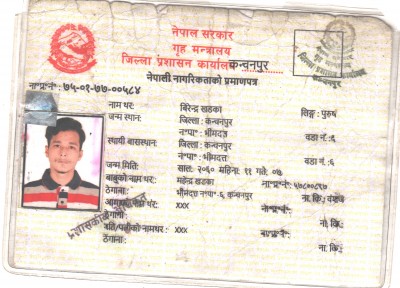 नेपाल सरकार
गृह मन्त्रालय
जिल्ला प्रशासन कार्यालय कन्चनपुर
नेपाली नागरिकताको प्रमाणपत्र
ना॰प्र॰नं॰ : ७५-०१-७७-००५८४
नाम थर: बिरेन्द्र खडका लिङ्ग : पुरुष
जन्म स्थान: जिल्ला : कन्चनपुर
न॰पा॰ : भीमदत्त वडा नं : ६
स्थायी बासस्थान: जिल्ला : कन्चनपुर
न॰पा॰ : भीमदत्त वडा नं : ६
जन्म मिति: साल: २०६० महिना: ११ गते: ०५
बाबुको नाम थर: महेन्द्र खडका ना॰प्र॰नं॰:
ठेगाना: भीमदत्त न॰पा॰-६, कन्चनपुर ना. कि.: वंशज
आमाको नाम थर: xxx ना॰प्र॰नं॰:
ठेगाना: ना. कि.:
पति/पत्नीको नामथर: xxx ना॰प्र॰नं॰:
ठेगाना: ना. कि.: